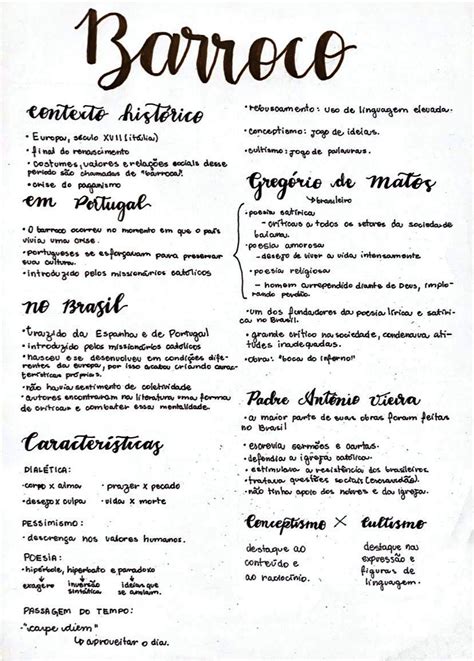 Barroco
contexto histórico
• Europa, século XVII (itália)
• final do renascimento
• costumes, valores e relações sociais desse
período são chamadas de "barroca".
• crise do paganismo
em Portugal
• O barroco ocorreu no momento em que o país
vivia uma crise.
• portugueses se esforçavam para preservar
sua cultura.
• introduzido pelos missionários católicos
no Brasil
• trazido da Espanha e de Portugal
• introduzido pelos missionários católicos
• nasceu e se desenvolveu em condições dife-
rentes da europa, por isso acabou criando carac-
terísticas próprias.
• não havia sentimento de coletividade
• autores encontraram na literatura uma forma
de criticar e combater essa mentalidade.
Características
DIALÉTICA:
• corpo x alma • prazer x pecado
• desejo x culpa • vida x morte
PESSIMISMO:
• descrença nos valores humanos.
POESIA:
• hipérbole, hipérbato e paradoxo
exagero inversão sintática ideias que se anulam.
PASSAGEM DO TEMPO:
• "carpe diem"
↳ aproveitar o dia.
• rebuscamento: uso de linguagem elevada.
• conceptismo: jogo de ideias.
• cultismo: jogo de palavras.
Gregório de Matos
↳ brasileiro
• poesia satírica
- críticas a todos os setores da sociedade
baiana.
• poesia amorosa
- desejo de viver a vida intensamente
• poesia religiosa
- homem arrependido diante de Deus, implo-
rando perdão.
• um dos fundadores da poesia lírica e satíri-
ca no Brasil.
• grande crítico na sociedade, condenava ati-
tudes inadequadas.
• obra: "boca do inferno"
Padre Antônio Vieira
• a maior parte de suas obras foram feitas
no Brasil
• escrevia sermões e cartas.
• defendia a igreja católica.
• estimulava a resistência dos brasileiros.
• tratava questões sociais (escravidão).
• não tinha apoio dos nobres e da igreja.
Conceptismo X Cultismo
destaque ao
conteúdo e
ao raciocínio.
destaque na
expressão e
figuras de
linguagem.